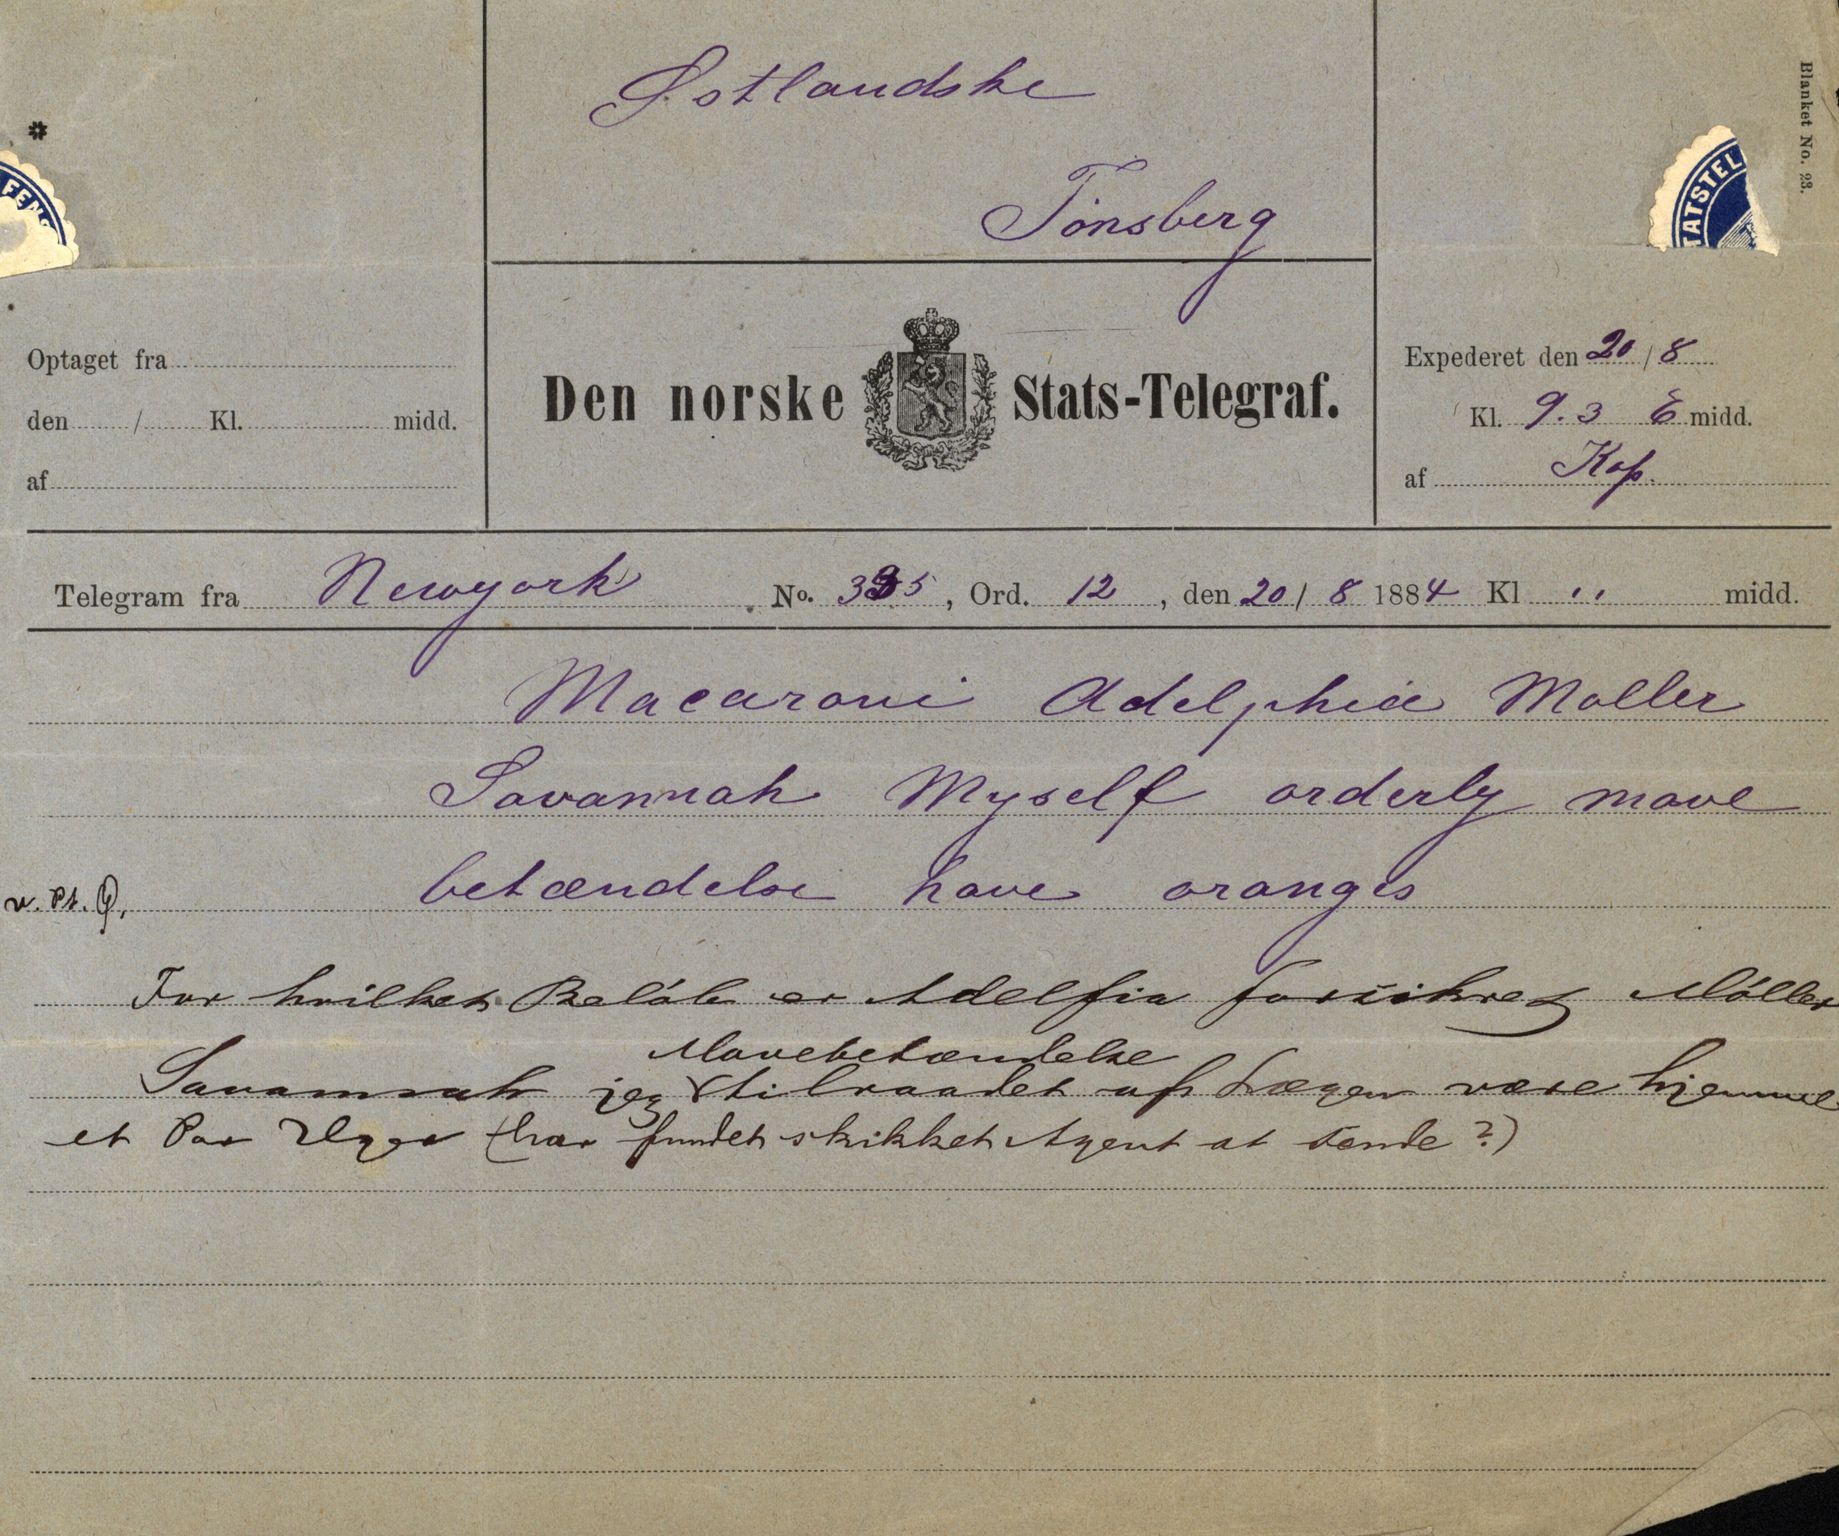 Østlandske
Tönsberg
Blanket No. 23.
FENS
TATSTEL
Optaget fra
den / Kl. midd.
af
Den norske Stats-Telegraf.
Expederet den 20/8
Kl. 9.3 E midd.
af Kap.
Telegram fra Newyork No. 335, Ord. 12, den 20/8 1884 Kl ,, midd.
Macaroni Adelphia Moller
Savannah Myself orderly mave
betændelse have oranges
v. Pt. Q,
For hvilket Beløb er Adelfia forsikret Möller
Mavebetændelse
Savannah jeg tilraadet af Lægen være hjemme
et Par Uger (har fundet skikket Agent at sende?)